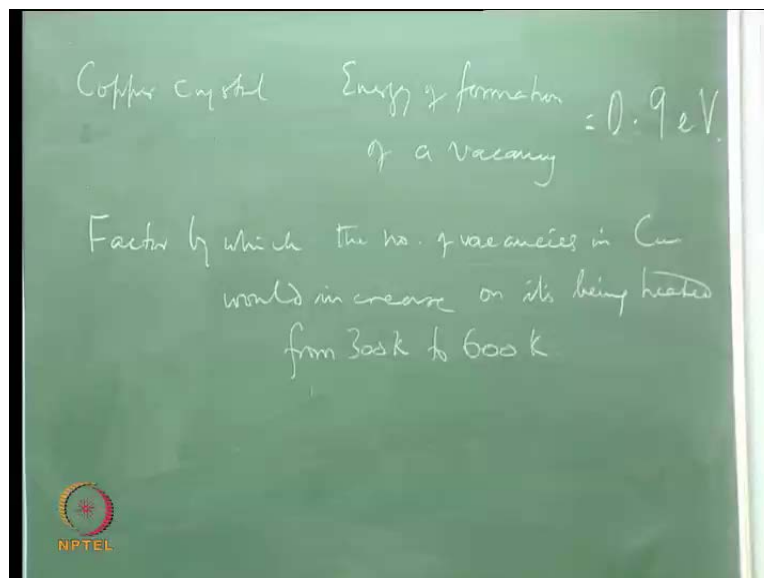 Copper crystal Energy of formation = 0.9 eV.
of a vacancy
Factor by which the no. of vacancies in Cu
would increase on its being heated
from 300K to 600K
NPTEL